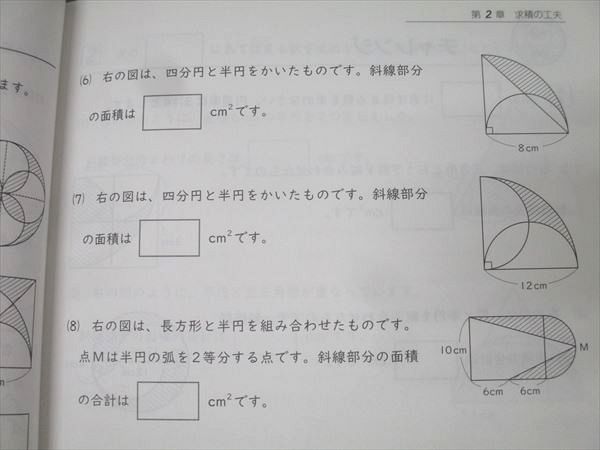 第2章 求積の工夫
ます。
(6) 右の図は、四分円と半円をかいたものです。斜線部分
の面積は cm²です。
8cm
(7) 右の図は、四分円と半円をかいたものです。斜線部分
の面積は cm²です。
12cm
(8) 右の図は、長方形と半円を組み合わせたものです。
点Mは半円の弧を2等分する点です。斜線部分の面積
の合計は cm²です。
10cm
M
6cm 6cm